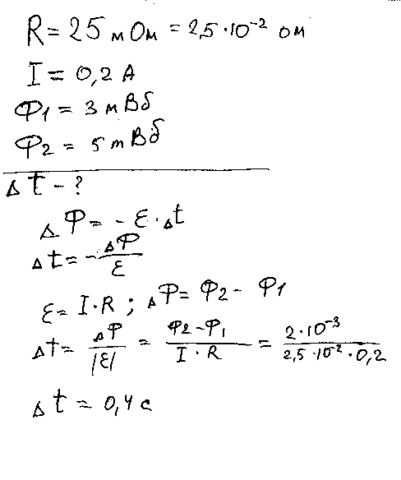 R = 25 мОм = 2,5·10⁻² ом
I = 0,2 А
Φ₁ = 3 мВб
Φ₂ = 5 мВб
Δt - ?
ΔΦ = - ε·Δt
Δt = - ΔΦ/ε
ε = I·R ; ΔΦ = Φ₂ - Φ₁
Δt = ΔΦ/|ε| = Φ₂-Φ₁/I·R = 2·10⁻³/2,5·10⁻²·0,2
Δt = 0,4 с